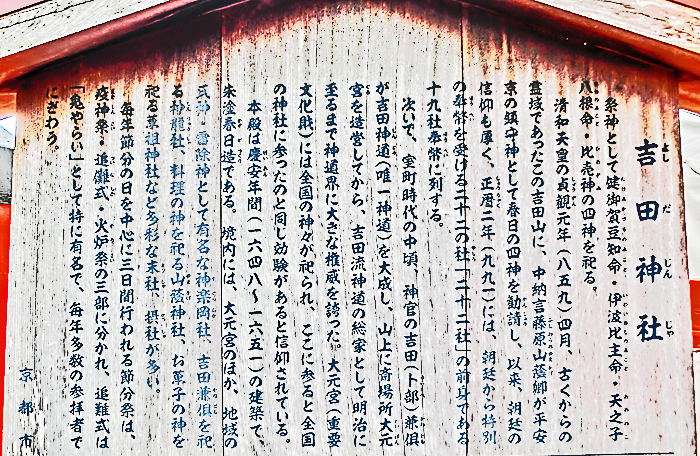 吉田神社
よしだじんじゃ
祭神として健御賀豆知命・伊波比主命・天之子
八根命・比売神の四神を祀る。
清和天皇の貞観元年(八五九)四月、古くからの
霊域であったこの吉田山に、中納言藤原山蔭卿が平安
京の鎮守神として春日の四神を勧請し、以来、朝廷の
信仰も厚く、正暦二年(九九一)には、朝廷から特別
の奉幣を受ける二十二の社「二十二社」の前身である
十九社奉幣に列する。
次いで、室町時代の中頃、神官の吉田(卜部)兼倶
が吉田神道(唯一神道)を大成し、山上に斎場所大元
宮を造営してから、吉田流神道の総家として明治に
至るまで神道界に大きな権威を誇った。大元宮(重要
文化財)には全国の神々が祀られ、ここに参ると全国
の神社に参ったのと同じ効験があると信仰されている。
本殿は慶安年間(一六四八〜一六五一)の建築で、
朱塗春日造である。境内には、大元宮のほか、地域の
氏神・雷除神として有名な神楽岡社、吉田兼倶を祀
る神龍社、料理の神を祀る山蔭神社、お菓子の神を
祀る菓祖神社など多彩な末社、摂社が多い。
毎年節分の日を中心に三日間行われる節分祭は、
疫神祭・追儺式・火炉祭の三部に分かれ、追儺式は
「鬼やらい」として特に有名で、毎年多数の参拝者で
にぎわう。
京都市